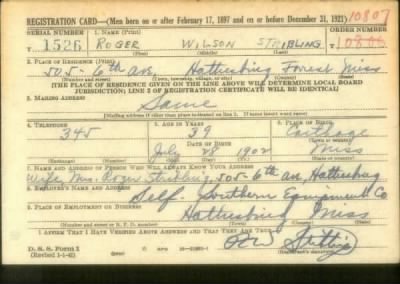 REGISTRATION CARD—(Men born on or after February 17, 1897 and on or before December 31, 1921) 10807
SERIAL NUMBER 1. NAME (Print) ORDER NUMBER
T 1526 ROGER WILSON STRIBLING
(First) (Middle) (Last)
2. PLACE OF RESIDENCE (Print)
505 6th av, Hattiesburg Forrest Miss
(Number and street) (Town, township, village, or city) (County) (State)
[THE PLACE OF RESIDENCE GIVEN ON THE LINE ABOVE WILL DETERMINE LOCAL BOARD
JURISDICTION; LINE 2 OF REGISTRATION CERTIFICATE WILL BE IDENTICAL]
3. MAILING ADDRESS
Same
[Mailing address if other than place indicated on line 2. If same insert word same]
4. TELEPHONE 5. AGE IN YEARS 6. PLACE OF BIRTH
345 39 Carthage
DATE OF BIRTH (Town or county)
July 28 1902 Miss
(Exchange) (Number) (Mo.) (Day) (Yr.) (State or country)
7. NAME AND ADDRESS OF PERSON WHO WILL ALWAYS KNOW YOUR ADDRESS
Wife Mrs. Roger Stribling, 505-6th av, Hattiesburg
8. EMPLOYER'S NAME AND ADDRESS
Self. Southern Equipment Co
9. PLACE OF EMPLOYMENT OR BUSINESS
Hattiesburg Miss
(Number and street or R. F. D. number) (Town) (County) (State)
I AFFIRM THAT I HAVE VERIFIED ABOVE ANSWERS AND THAT THEY ARE TRUE.
D. S. S. Form 1
(Revised 1-1-42) (over)
RW Stribling